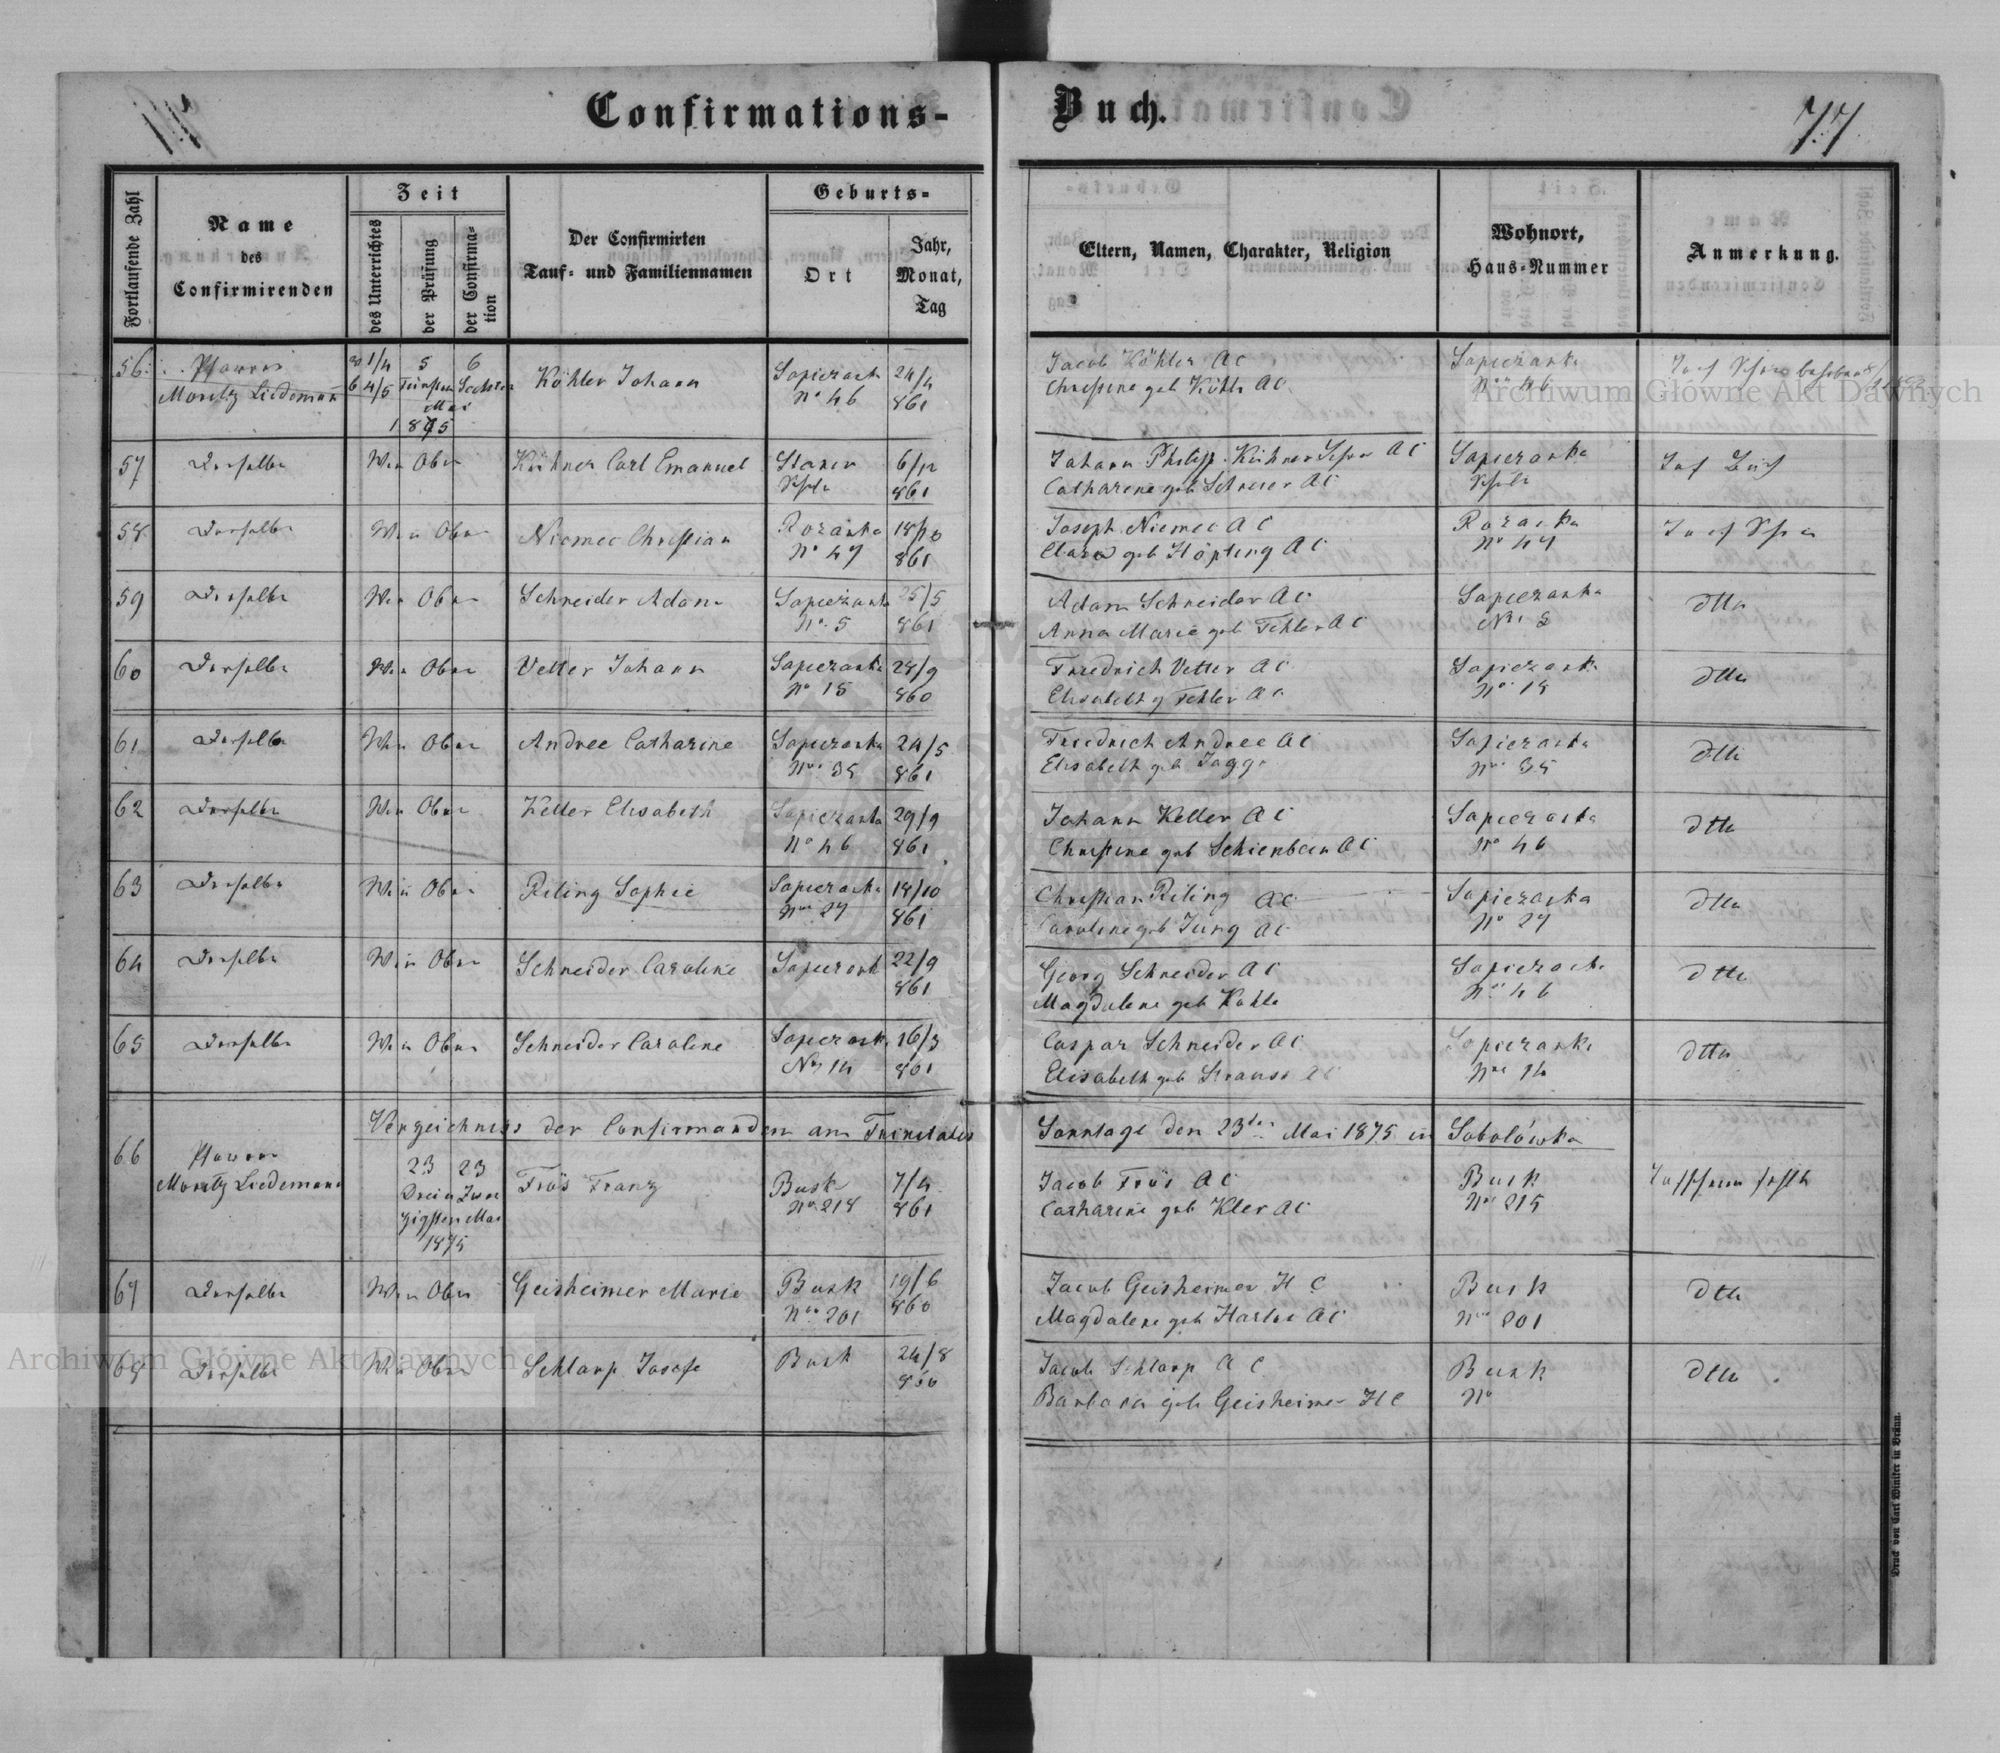 Confirmations-Buch.
77
Fortlaufende Zahl
Name
des
Confirmirenden
Zeit
des Unterrichtes
der Prüfung
der Confirma-
tion
Der Confirmirten
Tauf- und Familiennamen
Geburts-
Ort
Jahr,
Monat,
Tag
Eltern, Namen, Charakter, Religion
Wohnort,
Haus-Nummer
Anmerkung.
56.
Pfarrer
Moritz Liedemann
1/4
4/5
5
6
Mai
1875
Köhler Johann
No 46
24/4
861
Jacob Köhler AC
Christine geb Köhle AC
Sapiezanka
No 46
57
Derselbe
Wie Oben
Kühner Carl Emanuel
6/12
861
Johann Philipp Kühner AC
Catharine geb Schreier AC
Sapiezanka
58
Derselbe
Wie Oben
Niemec Christian
Rozanka
No 47
18/10
861
Joseph Niemec AC
Clara geb Höpting AC
Rozanka
No 47
59
Derselbe
Wie Oben
Schneider Adam
Sapiezanka
No 5
25/5
861
Adam Schneider AC
Anna Marie geb Fehler AC
Sapiezanka
dtto
60
Derselbe
Wie Oben
Vetter Johann
Sapiezanka
No 15
28/9
860
Friedrich Vetter AC
Elisabeth g Fehler AC
Sapiezanka
No 15
dtto
61
Derselbe
Wie Oben
Andree Catharine
Sapiezanka
No 35
24/5
861
Friedrich Andree AC
Elisabeth geb Jagge
Sapiezanka
No 35
dtto
62
Derselbe
Wie Oben
Keller Elisabeth
Sapiezanka
No 46
29/9
861
Johann Keller AC
Christine geb Schienbein AC
Sapiezanka
No 46
dtto
63
Derselbe
Wie Oben
Riling Sophie
Sapiezanka
No 27
18/10
861
Christian Riling AC
Caroline geb Jung AC
Sapiezanka
No 27
dtto
64
Derselbe
Wie Oben
Schneider Caroline
Sapiezank
22/9
861
Georg Schneider AC
Magdalene geb Kohle
Sapiezanka
No 46
dtto
65
Derselbe
Wie Oben
Schneider Caroline
Sapiezanka
No 14
16/3
861
Caspar Schneider AC
Elisabeth geb Strauss AC
Sapiezanka
No 14
dtto
Verzeichniss der Confirmanden am Trinitatis
Sonntage den 23ten Mai 1875 in Sobolówka
66
Pfarrer
Moritz Liedemann
23 23
Drei u Zwan
zigsten Mai
1875
Frös Franz
Busk
No 218
7/4
861
Jacob Frös AC
Catharine geb Kler AC
Busk
No 215
67
Derselbe
Wie Oben
Geisheimer Marie
Busk
No 201
19/6
860
Jacob Geisheimer HC
Magdalene geb Harlos AC
Busk
No 201
dtto
68
Derselbe
Wie Oben
Schlarp Josefe
Busk
24/8
860
Jacob Schlarp AC
Barbara geb Geisheimer HC
Busk
No
dtto
Druck von Carl Winiker in Brünn.
Archiwum Główne Akt Dawnych
Archiwum Główne Akt Dawnych